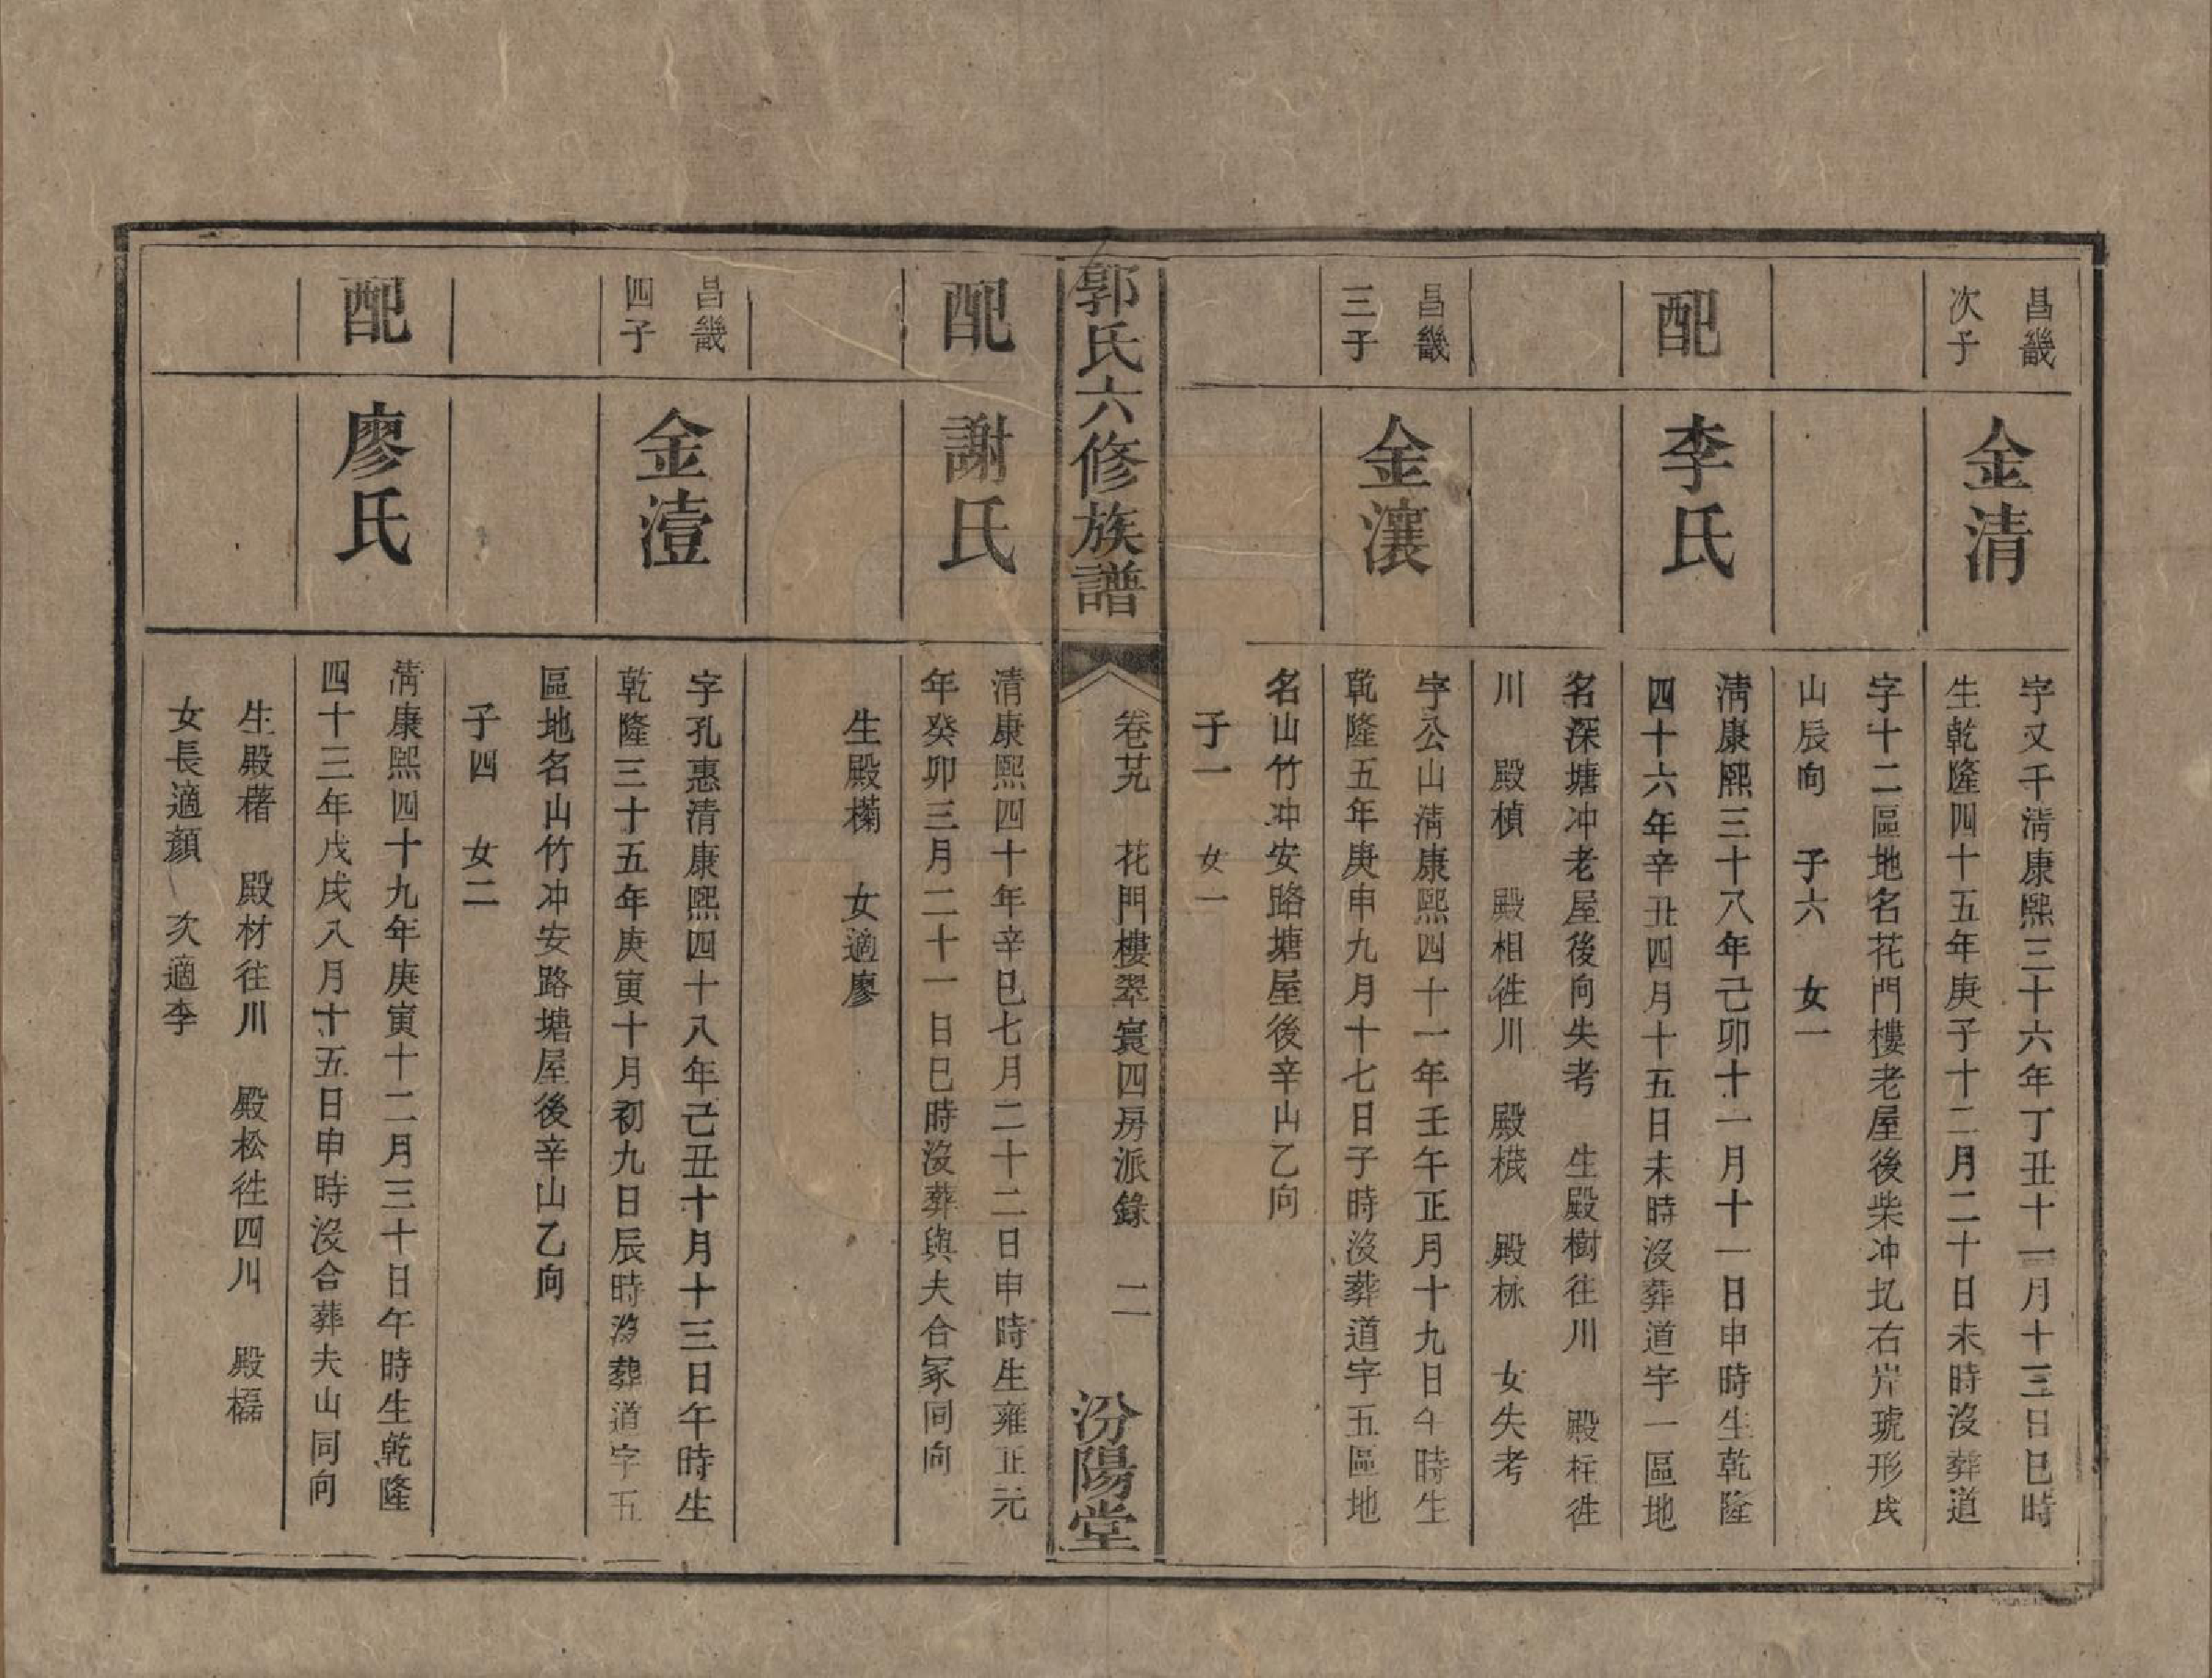 昌畿
次子
金清
字又千清康熙三十六年丁丑十一月十三日巳時
生乾隆四十五年庚子十二月二十日未時沒葬道
字十二區地名花門樓老屋後柴冲圠右岸琥形戌
山辰向 子六 女一
配
李氏
清康熙三十八年己卯十一月十一日申時生乾隆
四十六年辛丑四月十五日未時沒葬道字一區地
名深塘冲老屋後向失考 生殿樹往川 殿枉徃
川 殿楨 殿相徃川 殿機 殿栤 女失考
昌畿
三子
金瀼
字公山清康熙四十一年壬午正月十九日午時生
乾隆五年庚申九月十七日子時沒葬道字五區地
名山竹冲安路塘屋後辛山乙向
子一 女一
郭氏六修族譜
卷芁 花門樓翠寰四房派錄 二
汾陽堂
配
謝氏
清康熙四十年辛巳七月二十二日申時生雍正元
年癸卯三月二十一日巳時沒葬與夫合冢同向
生殿欗 女適廖
昌畿
四子
金澅
字孔惠清康熙四十八年己丑十月十三日午時生
乾隆三十五年庚寅十月初九日辰時沒葬道字五
區地名山竹冲安路塘屋後辛山乙向
子四 女二
配
廖氏
清康熙四十九年庚寅十二月三十日午時生乾隆
四十三年戊戌八月十五日申時沒合葬夫山同向
生殿櫡 殿材往川 殿松徃四川 殿櫑
女長適顏 次適李